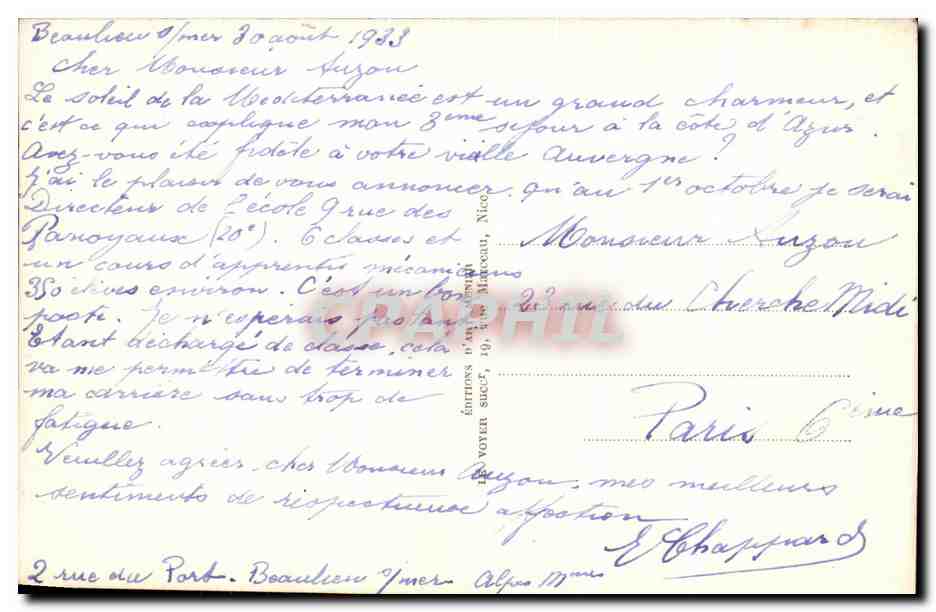 Beaulieu s/mer 30 août 1933
Cher Monsieur Auzou
Le soleil de la Méditerranée est un grand charmeur, et
c'est ce qui explique mon 3ème séjour à la côte d'Azur.
Avez-vous été fidèle à votre vieille Auvergne ?
J'ai le plaisir de vous annoncer qu'au 1er octobre je serai
Directeur de l'école 9 rue des
Panoyaux (20e). 6 classes et
un cours d'apprentis mécaniciens
350 élèves environ. C'est un bon
poste. Je n'espérais pas tant
Etant déchargé de classe, cela
va me permettre de terminer
ma carrière sans trop de
fatigue.
Veuillez agréer cher Monsieur Auzou, mes meilleurs
sentiments de respectueuse affection
E Chappard
2 rue du Port - Beaulieu s/mer Alpes Mmes
Monsieur Auzou
22 rue du Cherche Midi
Paris 6ème
ÉDITIONS D'ART
LE VOYER succr, 19, rue Marceau, Nice
CPAPHIL